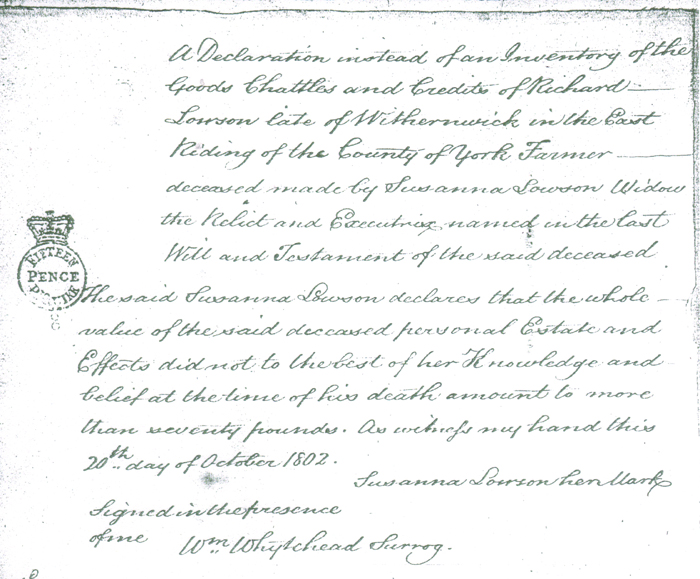 A Declaration instead of an Inventory of the
Goods Chattles and Credits of Richard
Lowson late of Withernwick in the East
Riding of the County of York Farmer
deceased made by Susanna Lowson Widow
the Relict and Executrix named in the last
Will and Testament of the said deceased
FIFTEEN
PENCE
The said Susanna Lowson declares that the whole
value of the said deceased personal Estate and
Effects did not to the best of her Knowledge and
belief at the time of his death amount to more
than seventy pounds. As witness my hand this
20th day of October 1802.
Susanna Lowson her Mark
Signed in the presence
of me Wm. Whytehead Surrog.